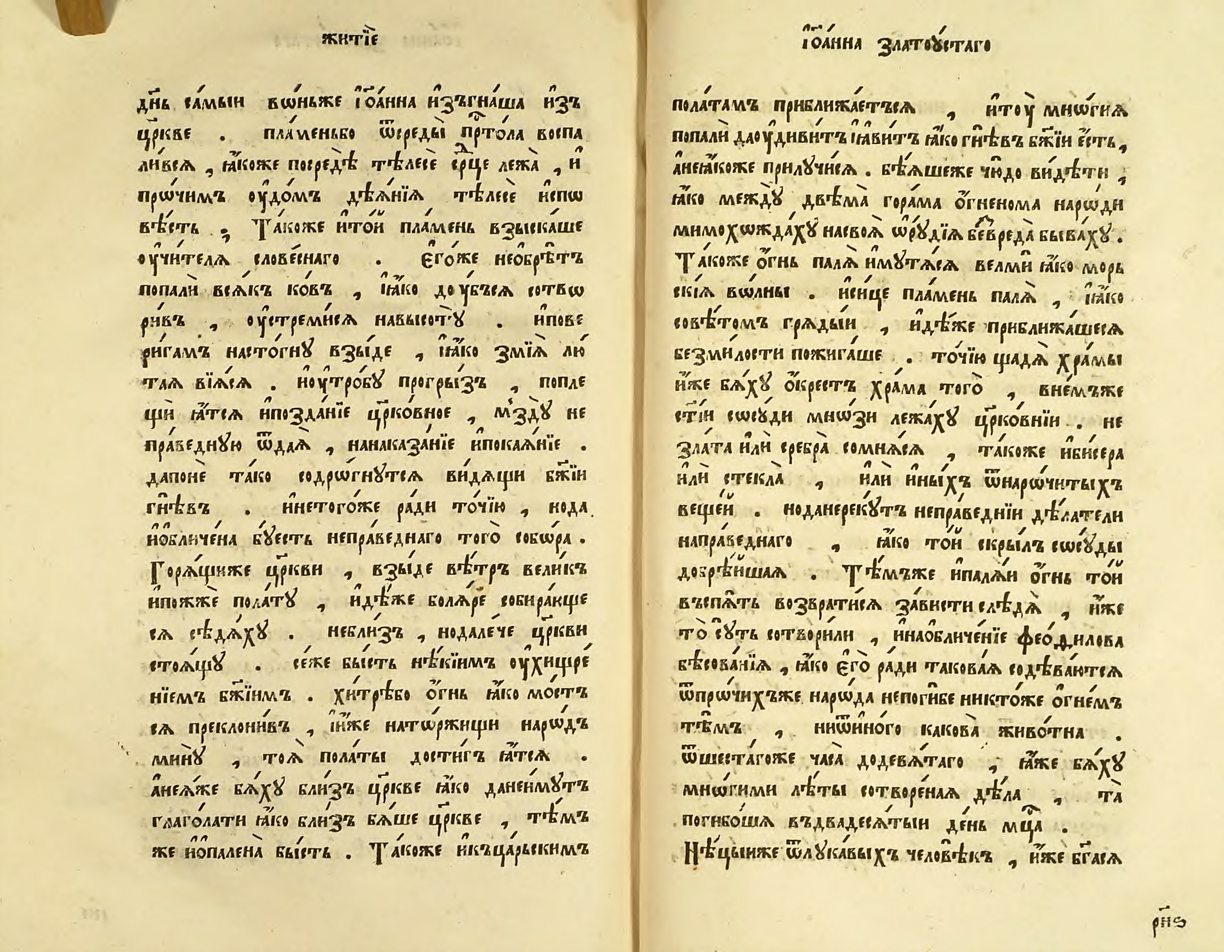 житїе
дн҃ь са́мыи вѡ́ньже і҆ѡа́нна и҆зъгна́ша и҆зъ
цр҃кве . пла́меньбо ѿсреды̀ прⷭ҇то́ла воспа
ли́всѧ , ꙗ҆́коже посредѣ̀ тѣ́лесе ср҃це лежа̀ , и҆
прѡ́чимъ оу҆дѡ́мъ дѣѧ̑нїѧ тѣ́лесѐ испѡ
вѣ́сть . Та́коже и҆то́й пла́мень взыска́ше
оу҆чи́телѧ слове́снаго . є҆го́же неѡбрѣ́тъ
попалѝ всѧ́къ ко́въ , і҆ꙗ҆́ко до ꙋ҆́бъсѧ сотвѡ
ри́въ , оу҆стреми́сѧ навысотꙋ̀ . и҆пове
ри́гамъ насто́гнꙋ взы́де , і҆ꙗ҆́ко змїѧ̀ лю́
таѧ вїѧ́сѧ . и҆оу҆тро́бꙋ прогры́зъ , попле
щи̑ ꙗ҆́тсѧ и҆позда́нїе цр҃ко́вное , м̾здꙋ̀ не
пра́веднꙋю ѿдаѧ̀ , нанаказа́нїе и҆покаѧ́нїе .
дапонѐ та́ко содрѡ́гнꙋтсѧ ви́дѧщи бж҃їи
гнѣ́въ . и҆нетого́же ра́ди то́чїю , нода
и҆ѡбличе́на бꙋ́есть непра́веднаго того̀ собѡ́ра .
Горѧ́щиже цр҃кви , взы́де вѣ́тръ вели́къ
и҆пожжѐ пола́тꙋ , и҆дѣ́же болѧ́ре собира́юще
сѧ сѣдѧ́хꙋ . небли́зъ , нодале́че цр҃кви
стоѧ́щꙋ . се́же бы́сть нѣ́кїимъ оу҆хищре́
нїемъ бж҃їимъ . хи́трѣбо о҆́гнь ꙗ҆́ко мо́стъ
сѧ преклони́въ , і҆и҆́же натѡ́ржищи нарѡ́дъ
минꙋ̀ , тоѧ̀ пола́ты дости́гъ ꙗ҆́тсѧ .
А҆неꙗ҆́же бѧ́хꙋ бли́зъ цр҃кве ꙗ҆́ко данеи́мꙋтъ
глаго́лати ꙗ҆́ко бли́зъ бѧ́ше цр҃кве , тѣ́мъ
же и҆ѡпаленà бы́сть . Та́коже и҆къца́рьскимъ
і҆ѡа́нна златоꙋ́стаго
пола́тамъ приближа́етъсѧ , и҆тоу̀ мнѡ́гиѧ
попалѝ даоу҆диви́тъ і҆ꙗ҆ви́тъ ꙗ҆́ко гнѣ́въ бж҃їи є҆́сть ,
а҆неꙗ҆́коже прилꙋчи́сѧ . бѣѧ́шеже чю́до ви́дѣти ,
ꙗ҆́ко междꙋ̀ двѣ́мà гора́ма о҆́гненома наро́ди
мимохѡжда́хꙋ насвоѧ̀ ѡ҆рꙋ́дїѧ бе́вредà быва́хꙋ .
Та́коже о҆́гнь палѧ̀ и҆мꙋ́тѧсѧ велми̑ ꙗ҆́ко морь
скі́ѧ вѡ́лны . и҆си́це пла́мень палѧ̀ , і҆ꙗ҆́ко
совѣ́томъ грѧды́й , и҆дѣ́же приближа́шесѧ
безми́лости пожига́ше . то́чїю щадѧ̀ хра́мы
и҆́же бѧ́хꙋ о҆́крестъ хра́ма того̀ , вне́мъже
ст҃і́и сѡсꙋ́ди мнѡ́зи лежа́хꙋ цр҃ко́внїи . не
зла́та и҆лѝ сребрà сомнѧ́сѧ , та́коже и҆би́сера
и҆лѝ стеклà , и҆лѝ и҆ны́хъ ѿнарѡ́читыхъ
веще́й . ноданереку́тъ непра́веднїи дѣ́латели
напра́веднаго , ꙗ҆́ко то́й скры́лъ сѡсꙋ́ды
добрѣ́йшаѧ . Тѣ́мъже и҆палѧ́и о҆́гнь то́й
въспѧ́ть возврати́сѧ за́висти слѣдѧ̀ , и҆́же
то̀ сꙋ́ть сотвори́ли , и҆наѡбличе́нїе феѻ́филова
бѣсова́нїѧ , ꙗ҆́ко є҆гѡ̀ ра́ди таковаѧ́ содѣва́ютсѧ
ѿпрѡ́чихъже наро́да непоги́бе никто́же о҆гне́мъ
тѣ́мъ , ниѿи́ного какова̀ живо́тна .
ѿшеста́гоже часа̀ додевѧ́таго , ꙗ҆́же бѧ́хꙋ
мнѡ́гими лѣ́ты сотворе́наѧ дѣла̀ , та
погибо́шѧ въдвадесѧ́тыи де́нь мцⷭ҇а .
Нѣ́цыиже ѿлꙋка́выхъ человѣ́къ , и҆́же бг҃асѧ
рн҃ѕ